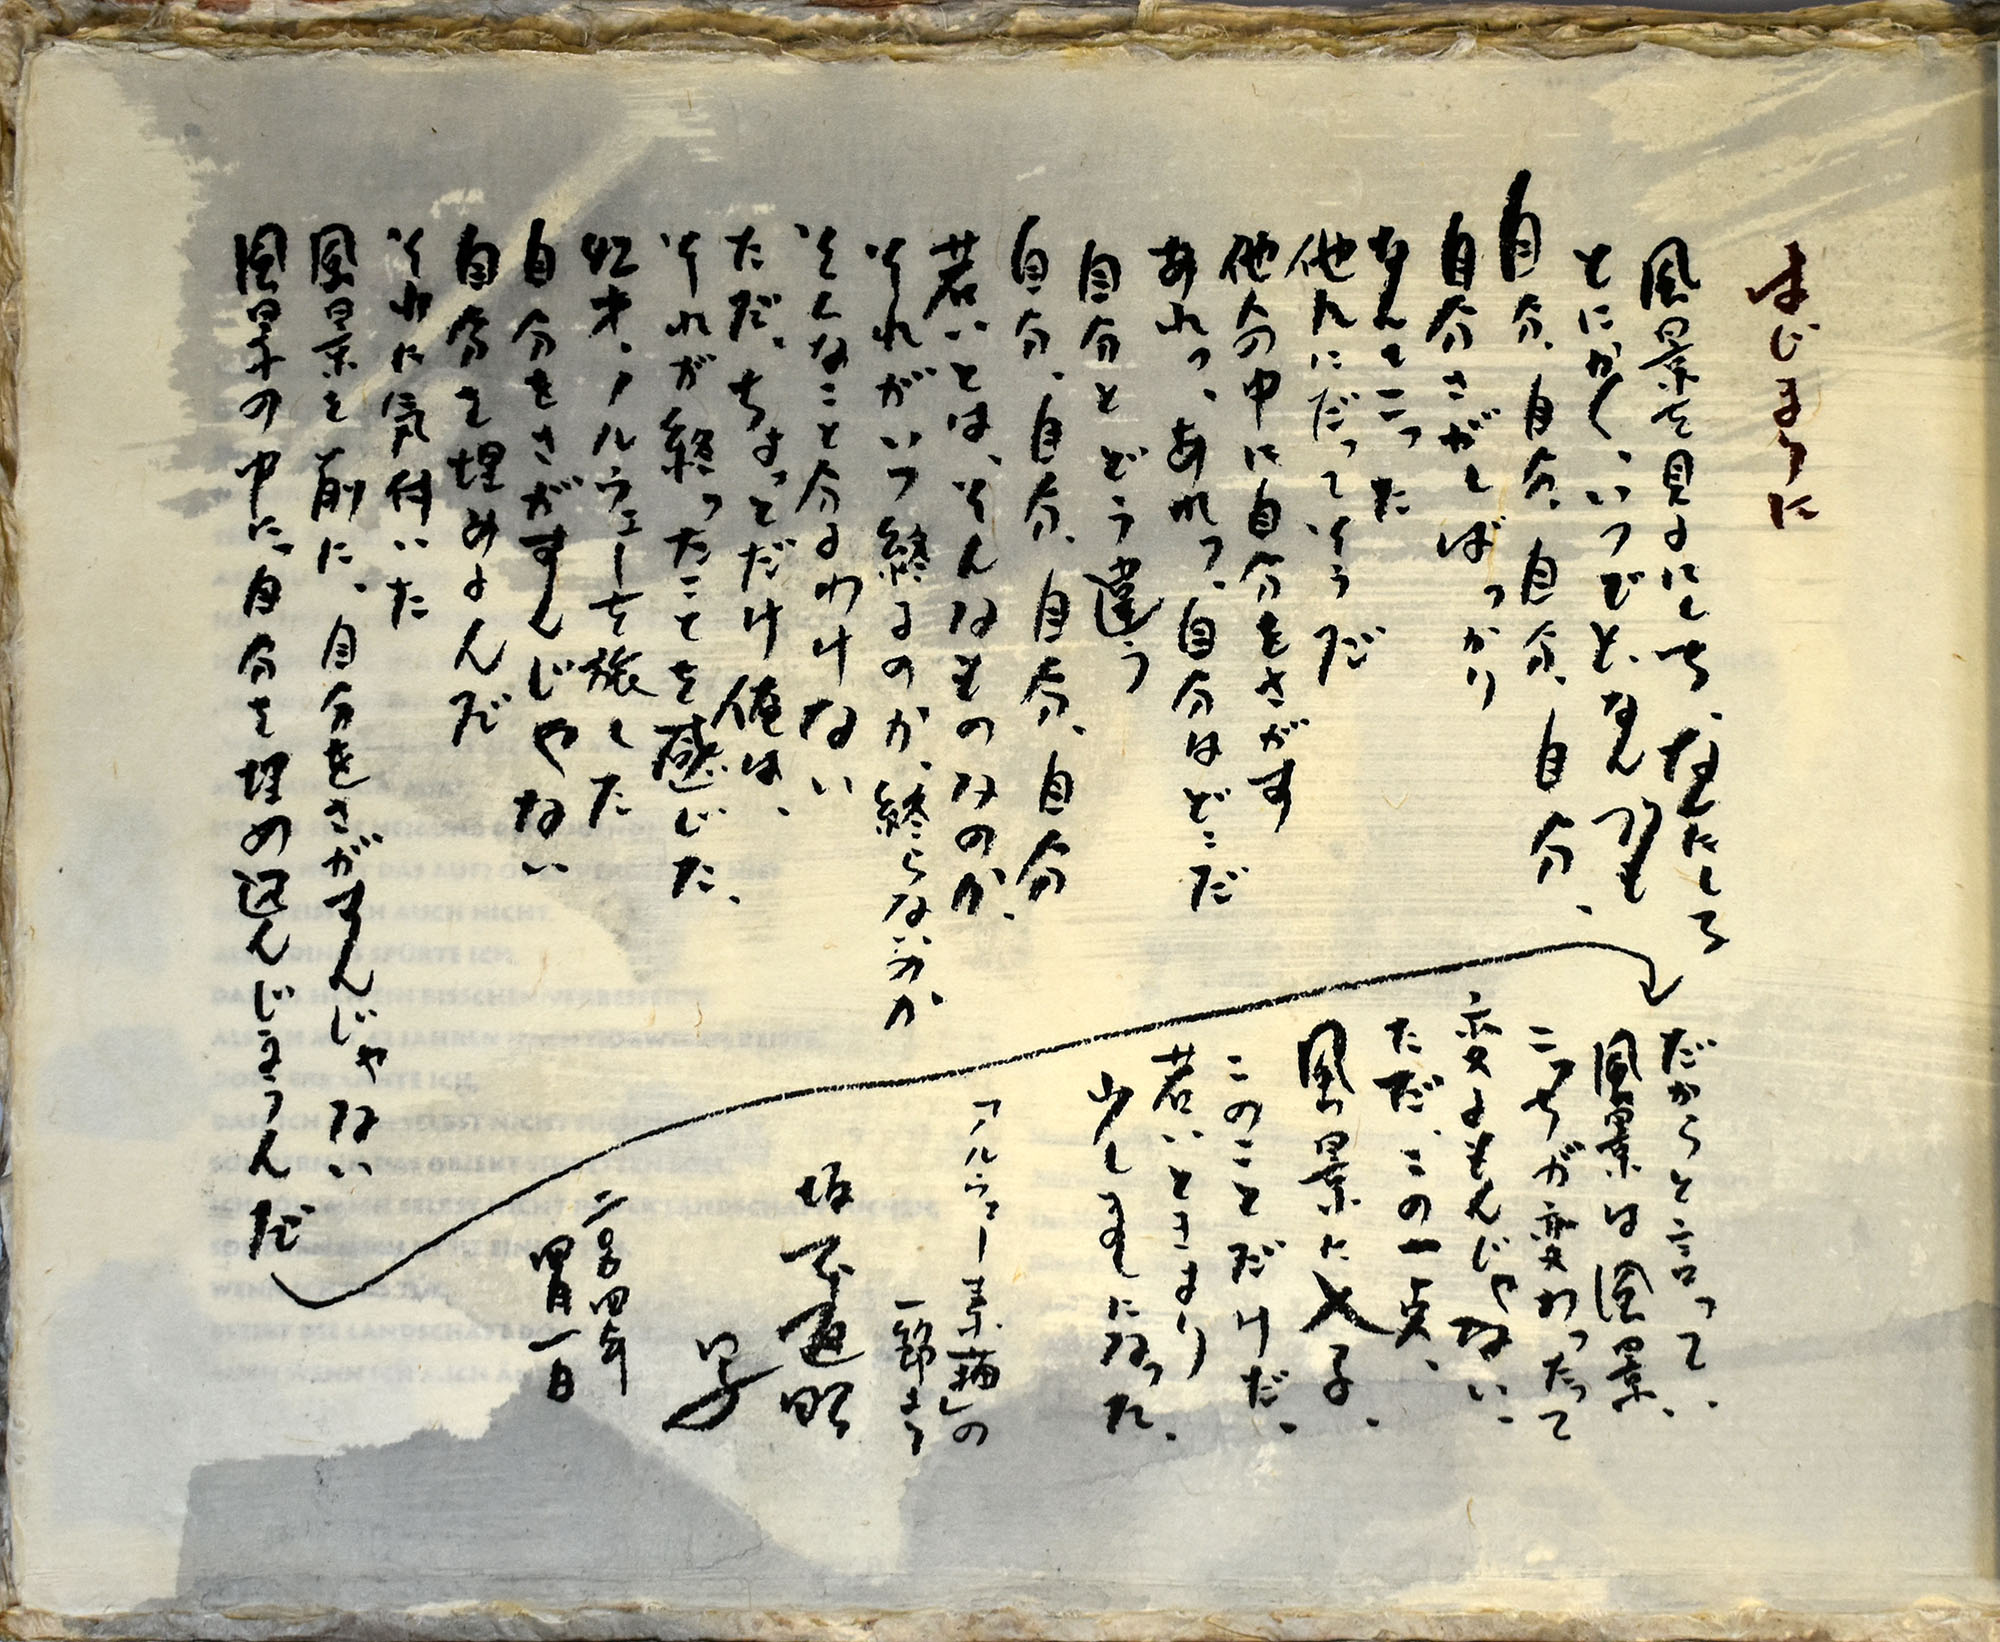 はじまりに
風景を見るにしろ、なんにしろ
とにかく、いつでも、なん間も
自分、自分、自分、自分、
自分さがしばっかり
なんてこった
他人にだってそうだ
他人の中に自分をさがす
あれっ、あれっ、自分はどこだ
自分とどう違う
自分、自分、自分、自分
若いとは、そんなものなのか、
それがいつ終るのか、終らないのか
そんなこと分るわけない
ただ、ちょっとだけ俺は、
それが終ったことを感じた、
、ノルウェーを旅した
自分をさがすんじゃない
自分を埋めるんだ
それに気付いた
風景を前に、自分をさがすんじゃない
風景の中に、自分を埋め込んじまうんだ
だからと言って、
風景は風景、
こっちが変わったって
変るもんじゃない、
ただ、この一点、
風景に
このことだけだ、
若いときより
少しましになった、
ノルウェー素描の
一節より
坂
二〇〇四年
四月一日
DAS AUF
AUCH NICHT.
SPÜRTE ICH,
EIN BISSCHEN VERBESSERTE